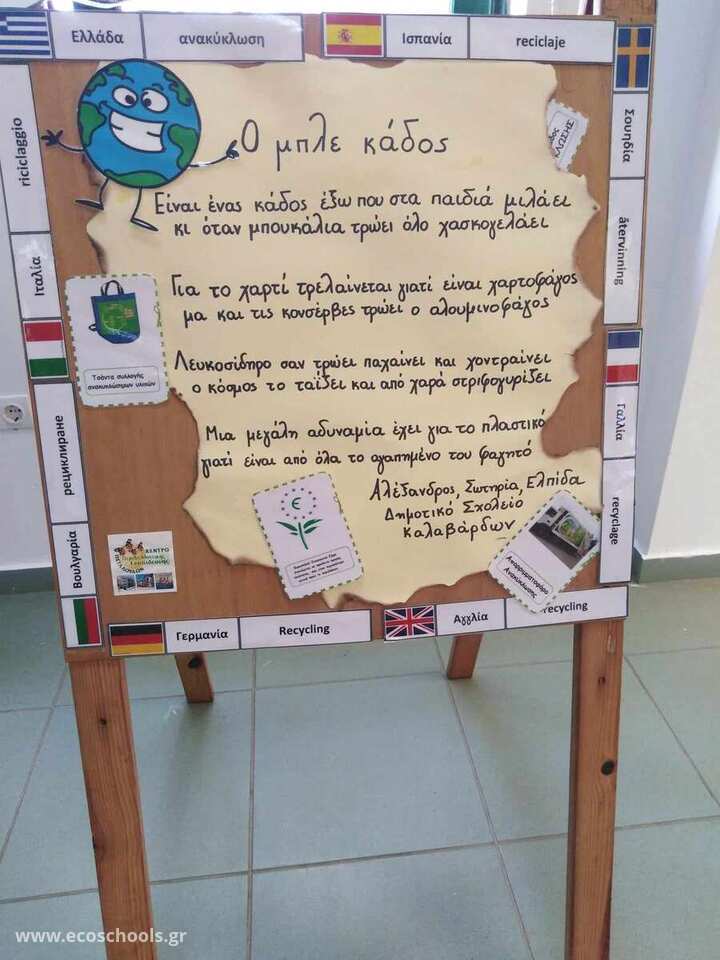 Ελλάδα
ανακύκλωση
Ισπανία
reciclaje
Σουηδία
återvinning
Γαλλία
recyclage
riciclaggio
Ιταλία
рециклиране
Βουλγαρία
Γερμανία
Recycling
Αγγλία
recycling
Ο μπλε κάδος
Είναι ένας κάδος έξω που στα παιδιά μιλάει
κι όταν μπουκάλια τρώει όλο χασκογελάει
Για το χαρτί τρελαίνεται γιατί είναι χαρτοφάγος
μα και τις κονσέρβες τρώει ο αλουμινοφάγος
Λευκοσίδηρο σαν τρώει παχαίνει και χοντραίνει
ο κόσμος το ταΐζει και από χαρά στριφογυρίζει
Μια μεγάλη αδυναμία έχει για το πλαστικό
γιατί είναι από όλα το αγαπημένο του φαγητό
Αλέξανδρος, Σωτηρία, Ελπίδα
Δημοτικό Σχολείο
Καλαβάρδων
Τσάντα συλλογής
ανακυκλώσιμων υλικών
Απορριμματοφόρο
Ανακύκλωσης
ΚΕΝΤΡΟ
Περιβαλλοντικής
Εκπαίδευσης
ΠΕΤΑΛΟΥΔΩΝ
www.ecoschools.gr